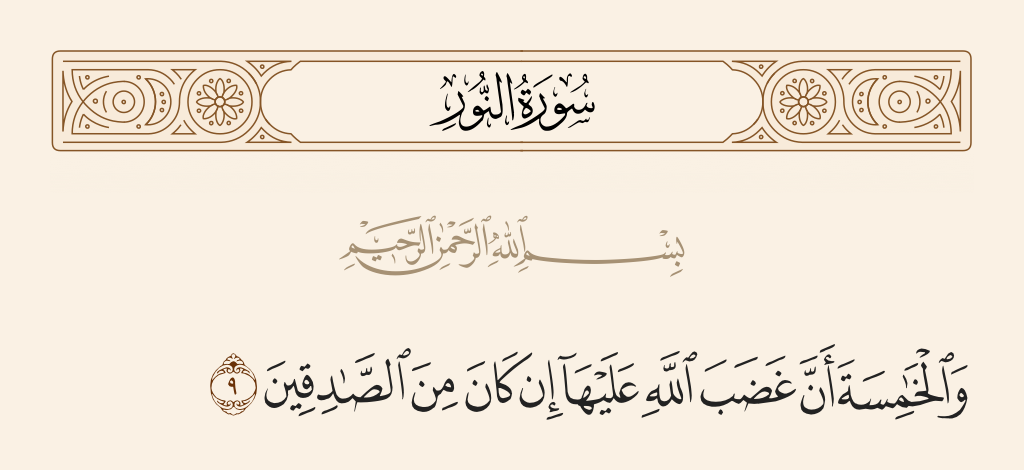 سُورَةُ النُّورِ
بِسْمِ ٱللَّهِ ٱلرَّحْمَٰنِ ٱلرَّحِيمِ
وَٱلْخَٰمِسَةَ أَنَّ غَضَبَ ٱللَّهِ عَلَيْهَآ إِن كَانَ مِنَ ٱلصَّٰدِقِينَ ٩